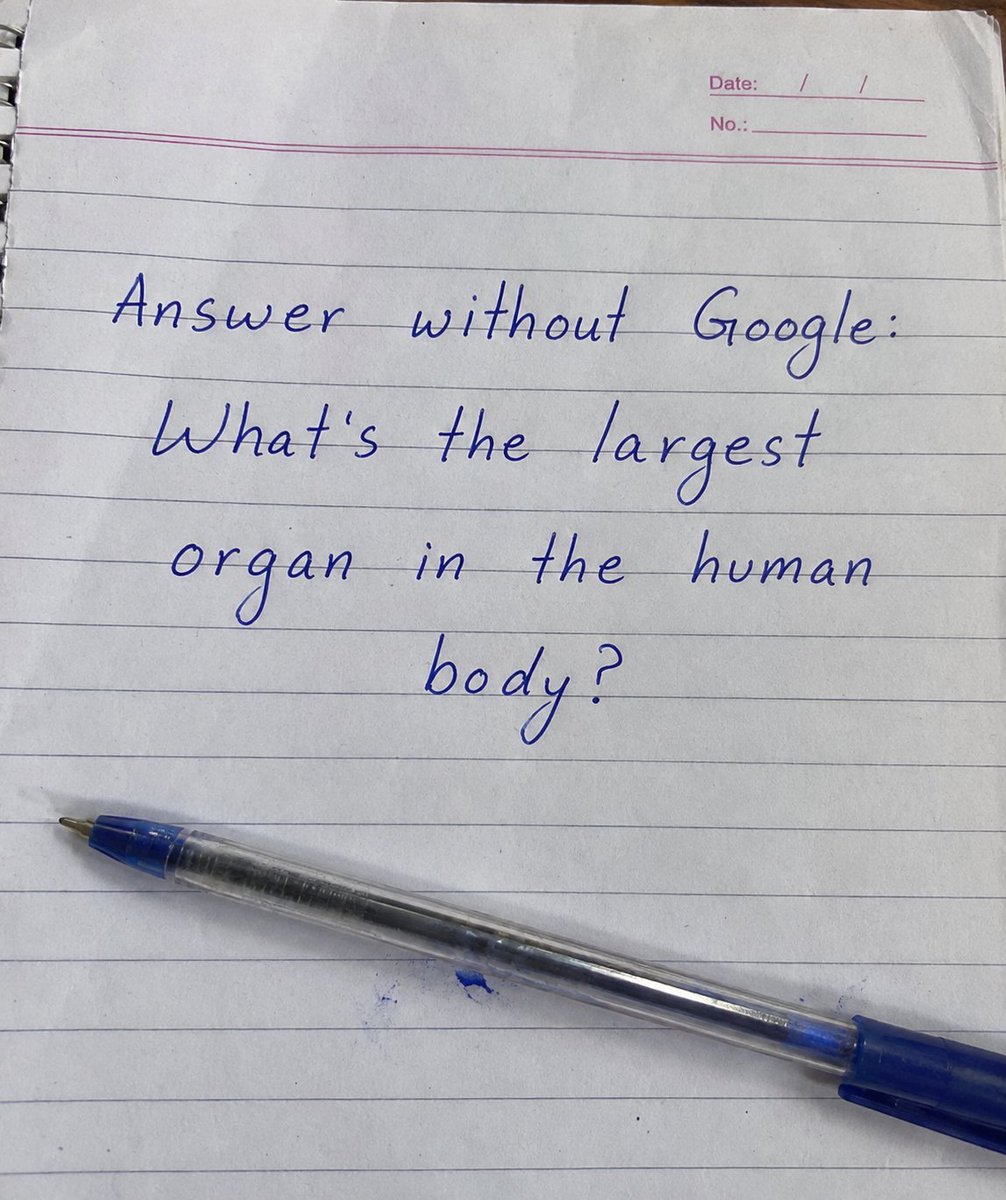 Date: / /
No.:
Answer without Google:
What's the largest
organ in the human
body?